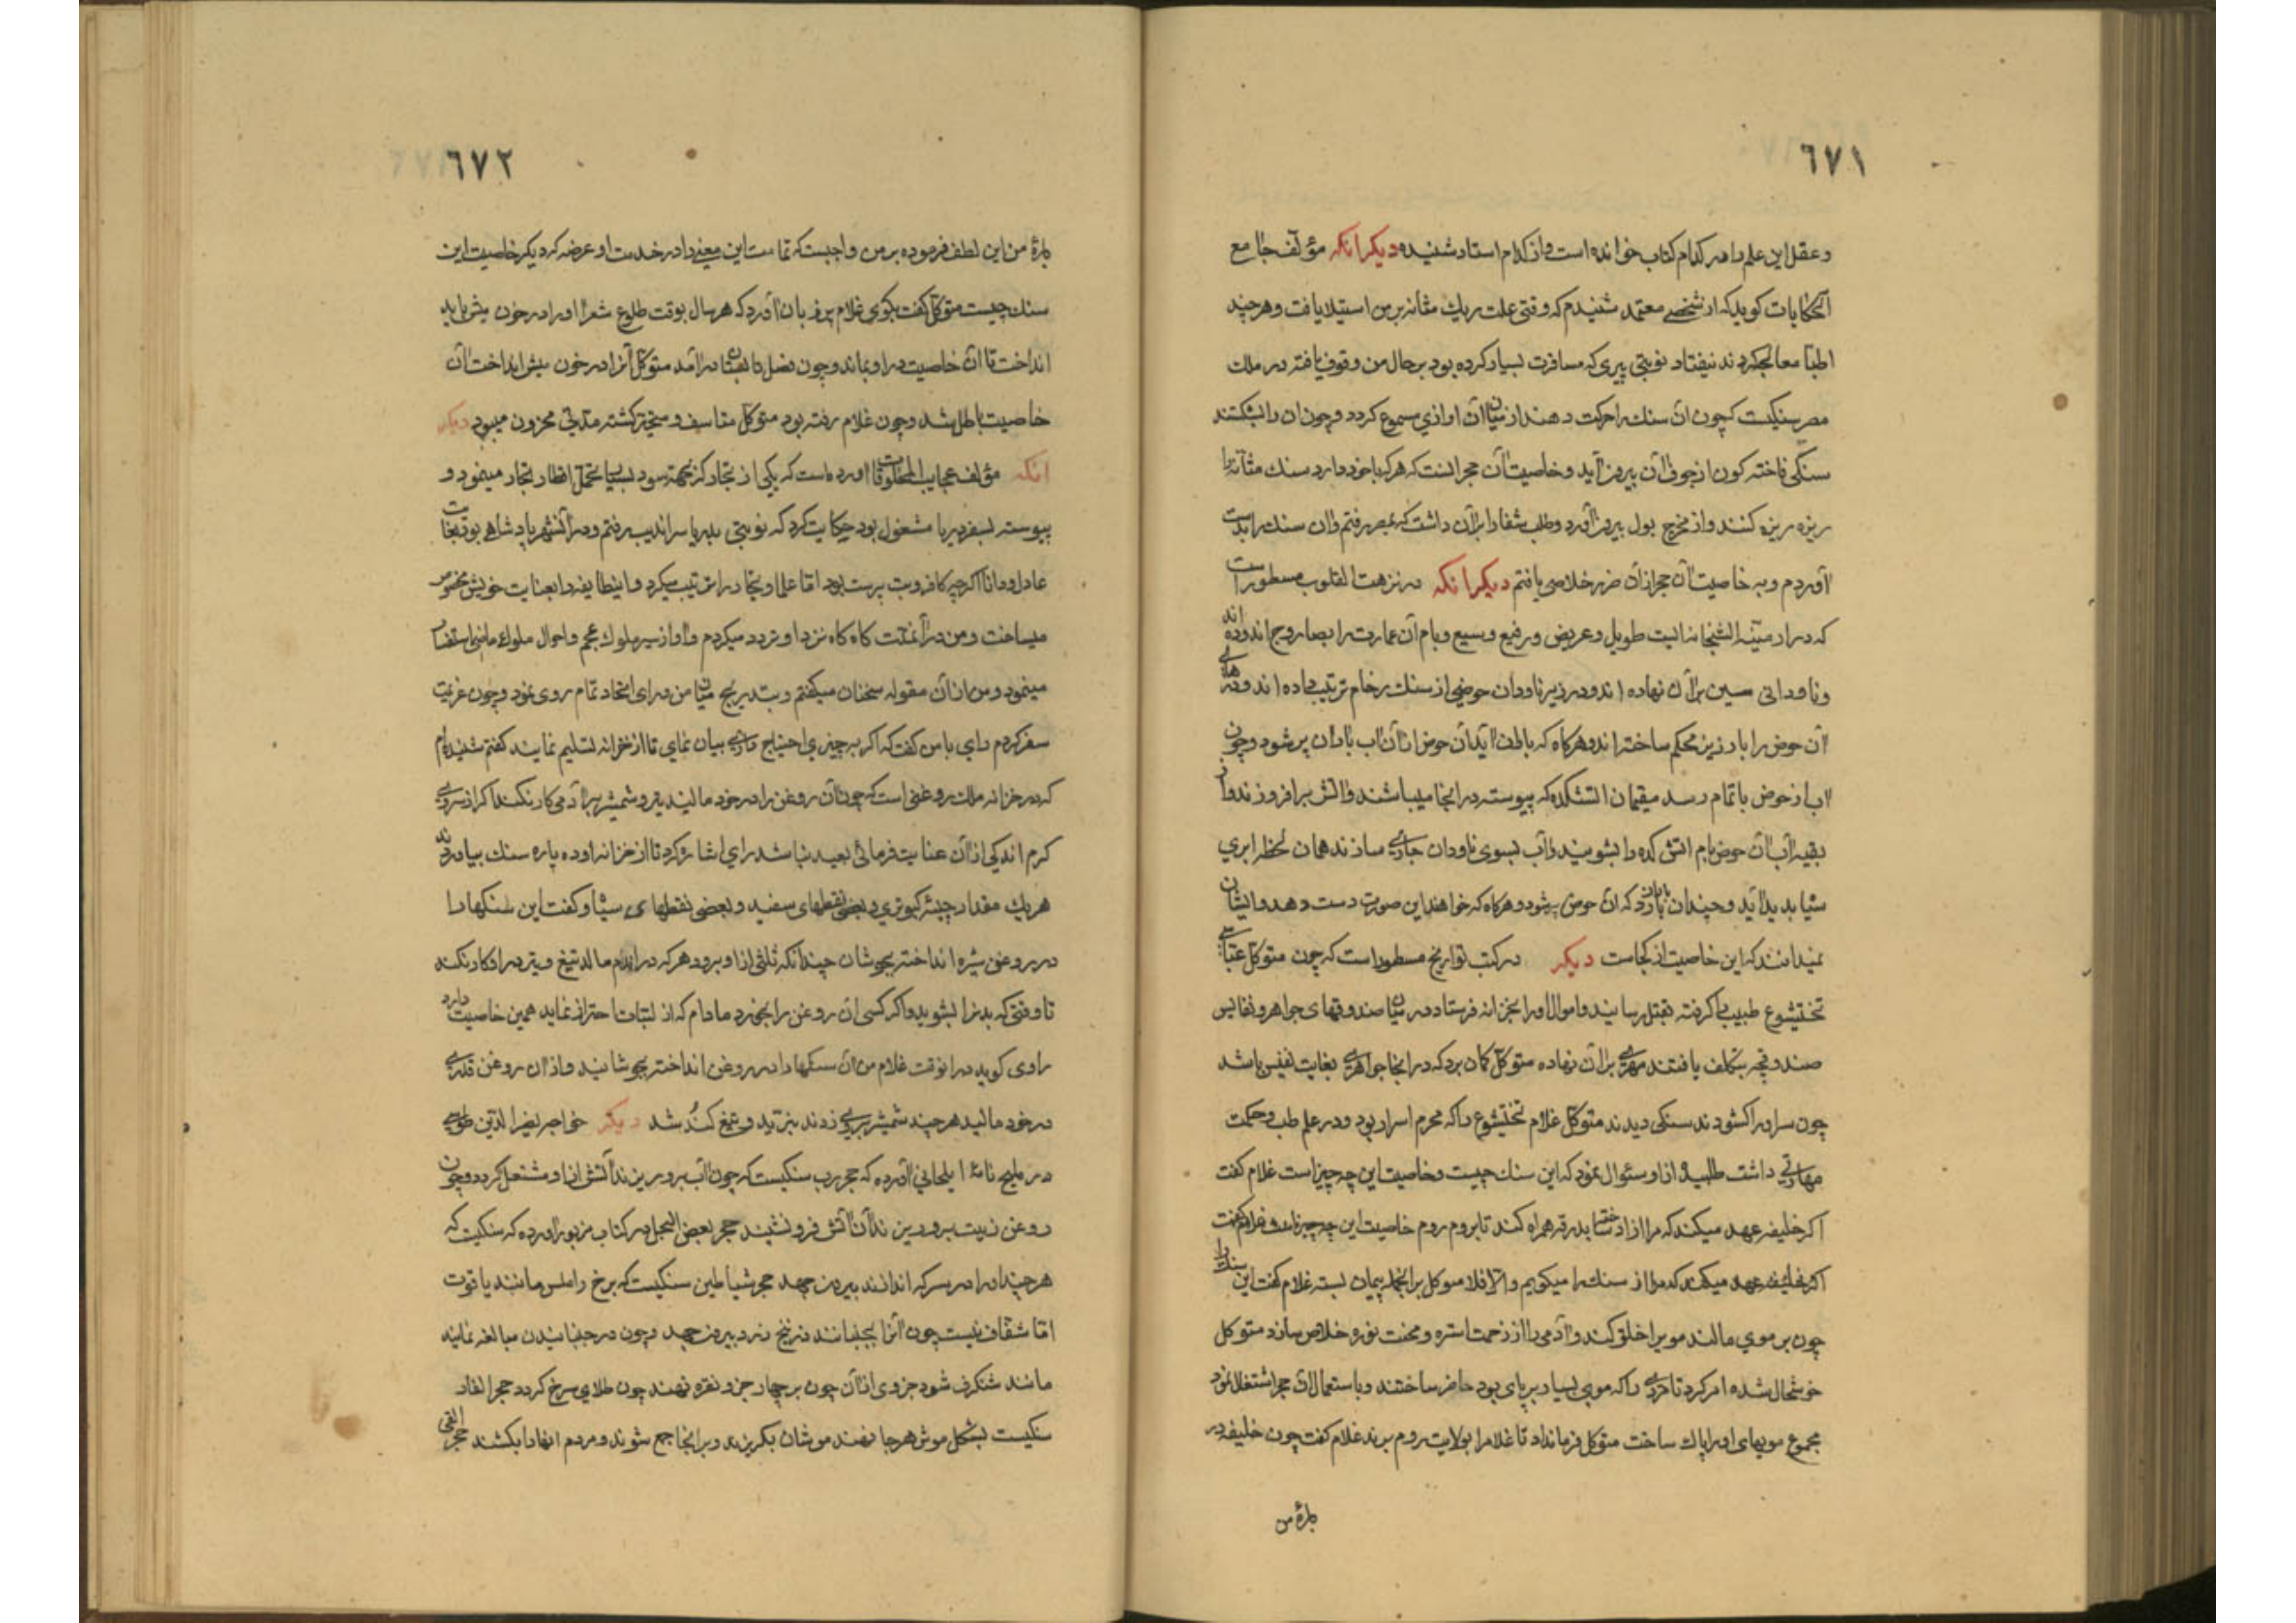 ٦٧١
و عقل این علم را در کدام کتاب خوانده است و از کدام استاد شنیده دیکر انکه مؤلف جامع
الحکایات کوید که از شخصی معتمد شنیدم که وقتی علت ریك مثانه بر من استیلا یافت و هر چند
اطبا معالجه کردند نیفتاد نوبتی پیری که مسافرت بسیار کرده بود بر حال من وقوف یافته در ملك
مصر سنکیست که چون آن سنك را حرکت دهند از میان آن اوازی مسموع کردد و چون ان را بشکنند
سنکی فاخته کون از جوف آن بیرون آید و خاصیت آن حجر انست که هر که با خود دارد سنك مثانه را
ریزه ریزه کند و از مخرج بول بیرون آورد و طلب شفا را بر آن داشت که بمصر رفتم و ان سنك را بدست
آوردم و به خاصیت آن حجر از آن ضرر خلاصی یافتم دیکر انکه در نزهت القلوب مسطور است
که در ارمینه الشخانه ایست طویل و عریض و رفیع و وسیع و بام آن عمارت را بصاروج اندوده اند
و ناودانی مسین بر آن نهاده اند و در زیر ناودان حوضی از سنك رخام ترتیب داده اند و درهای
آن حوض را با رزیز محکم ساخته اند و هر کاه که باران آید آن حوض از آن اب باران پر شود و چون
اب از حوض باتمام رسد مقیمان اتشکده که پیوسته در انجا میباشند و اتش برافروزند و از
بقیه آب آن حوض بام اتش کده را بشویند و آب بسوی ناودان جاری سازند همان لحظه ابری
سیاه بدید آید و چندان باران بارد که آن حوض پر شود و هر کاه که خواهند این صورت دست دهد و ایشان
نمیدانند که این خاصیت از کجاست دیکر در کتب تواریخ مسطور است که چون متوکل عباسی
تختیشوع طبیب را کرفته بقتل رسانید و اموال او را بخزانه فرستاد در میان صندوقهای جواهر و نفایس
صندوقچه بتکلف یافتند مهری بر آن نهاده متوکل کمان برد که در انجا جواهری بغایت نفیس باشد
چون سر او را کشودند سنکی دیدند متوکل غلام تختیشوع را که محرم اسرار بود و در علم طب و حکمت
مهارتی داشت طلبید و از او سئوال نمود که این سنك چیست و خاصیت این چه چیز است غلام کفت
اکر خلیفه عهد میکند که مرا ازاد ساخته بدرقه همراه کند تا بروم روم خاصیت این
اکر خلیفه عهد میکند که مرا از سنك را میکویم و الا فلا متوکل بر انجمله پیمان بسته غلام کفت این سنك را
چون بر موی مالند موی را حلق کند و آدمی را از زحمت استره و محنت نوره خلاص سازد متوکل
خوشحال شده امر کرد تا مردی را که موی بسیار بر پای بود حاضر ساختند و باستعمال آن حجر اشتغال نمود
مجموع مویهای او را پاك ساخت متوکل فرمانداد تا غلام را بولایت روم برند غلام کفت چون خلیفه در
بارهٔ من
٦٧٢
بارهٔ من این لطف فرموده بر من واجبست که تمامت این معنی را در خدمت او عرضه کرد دیکر خاصیت این
سنك چیست متوکل کفت بکوی غلام بر زبان آورد که هر سال بوقت طلوع شعرا او را در خون میش باید
انداخت تا آن خاصیت در او بماند و چون فصل تابستان در آمد متوکل آنرا در خون میش انداخت آن
خاصیت باطل شد و چون غلام رفته بود متوکل متاسف و متحیر کشته مدتی محزون میبود دیکر
انکه مؤلف عجایب المخلوقات اورده است که یکی از تجار که بجهة سود بسیار تحمل اخطار بحار مینمود و
پیوسته بسفر دریا مشغول بود حکایت کرد که نوبتی بدریا سراندیب رفتم و در آنشهر پادشاهی بود بغایت
عادل و دانا اکر چه کافر و بت پرست بود اما علما و تجار را تربیت میکرد و اینطایفه را بعنایت خویش مخصوص
میساخت و من در آنمدت کاه کاه نزد او تردد میکردم و او از سیر ملوك عجم و احوال ملوك ماضی استفسار
مینمود و من از آن مقوله سخنان میکفتم و بتدریج میان من و رای اتحاد تمام روی نمود و چون عزیمت
سفر کردم رای با من کفت که اکر به چیزی احتیاج داری بیان نمای تا از خزانه تسلیم نمایند کفتم شنیده ام
که در خزانه ملك روغنی است که چون آن روغن را در خود مالند تیر و شمشیر بر آدمی کار نکند اکر از سر
کرم اندکی از آن عنایت فرمائی بعید نباشد رای اشاره کرد تا از خزانه او ده پاره سنك بیاوردند
هر یك مقدار چینهٔ کبوتری و بعضی نقطهای سفید و بعضی نقطهای سیاه و کفت این سنکها را
در روغن شیره انداخته بجوشان چندانکه ثلثی از او برود هر که در اندام مالد تیغ و تیر در او کار نکند
تا وقتی که بدنرا بشوید و اکر کسی ان روغن را بخورد مادام که از لبنیات احتراز نماید همین خاصیت دارد
راوی کوید در انوقت غلام من آن سنکها را در روغن انداخته بجوشانید و از ان روغن قدری
در خود مالید هر چند شمشیر بر وی زدند نبرید و تیغ کند شد دیکر خواجه نصیر الدین طوسی
در تنسوخ نامهٔ ایلخانی آورده که حجر رب سنکیست که چون آب بر و ریزند آتش از او مشتعل کردد و چون
روغن زیت بر و ریزند آن آتش فرو نشیند حجر بعض الخل در کتاب مزبور اورده که سنکیست که
هر چند او را در سرکه اندازند بیرون جهد حجر شیاطین سنکیست که سرخ و املس مانند یاقوت
اما شفاف نیست چون آنرا بجنبانند زرنیخ زرد بیرون جهد و چون در جنبانیدن مبالغه نمایند
مانند شنکرف شود جزوی از آن چون بر چهار جزو نقره نهند چون طلای سرخ کردد حجر الفار
سنکیست بشکل موش هر جا نهند موشان بکریزند و بر انجا جمع شوند و مردم انها را بکشند حجر القی